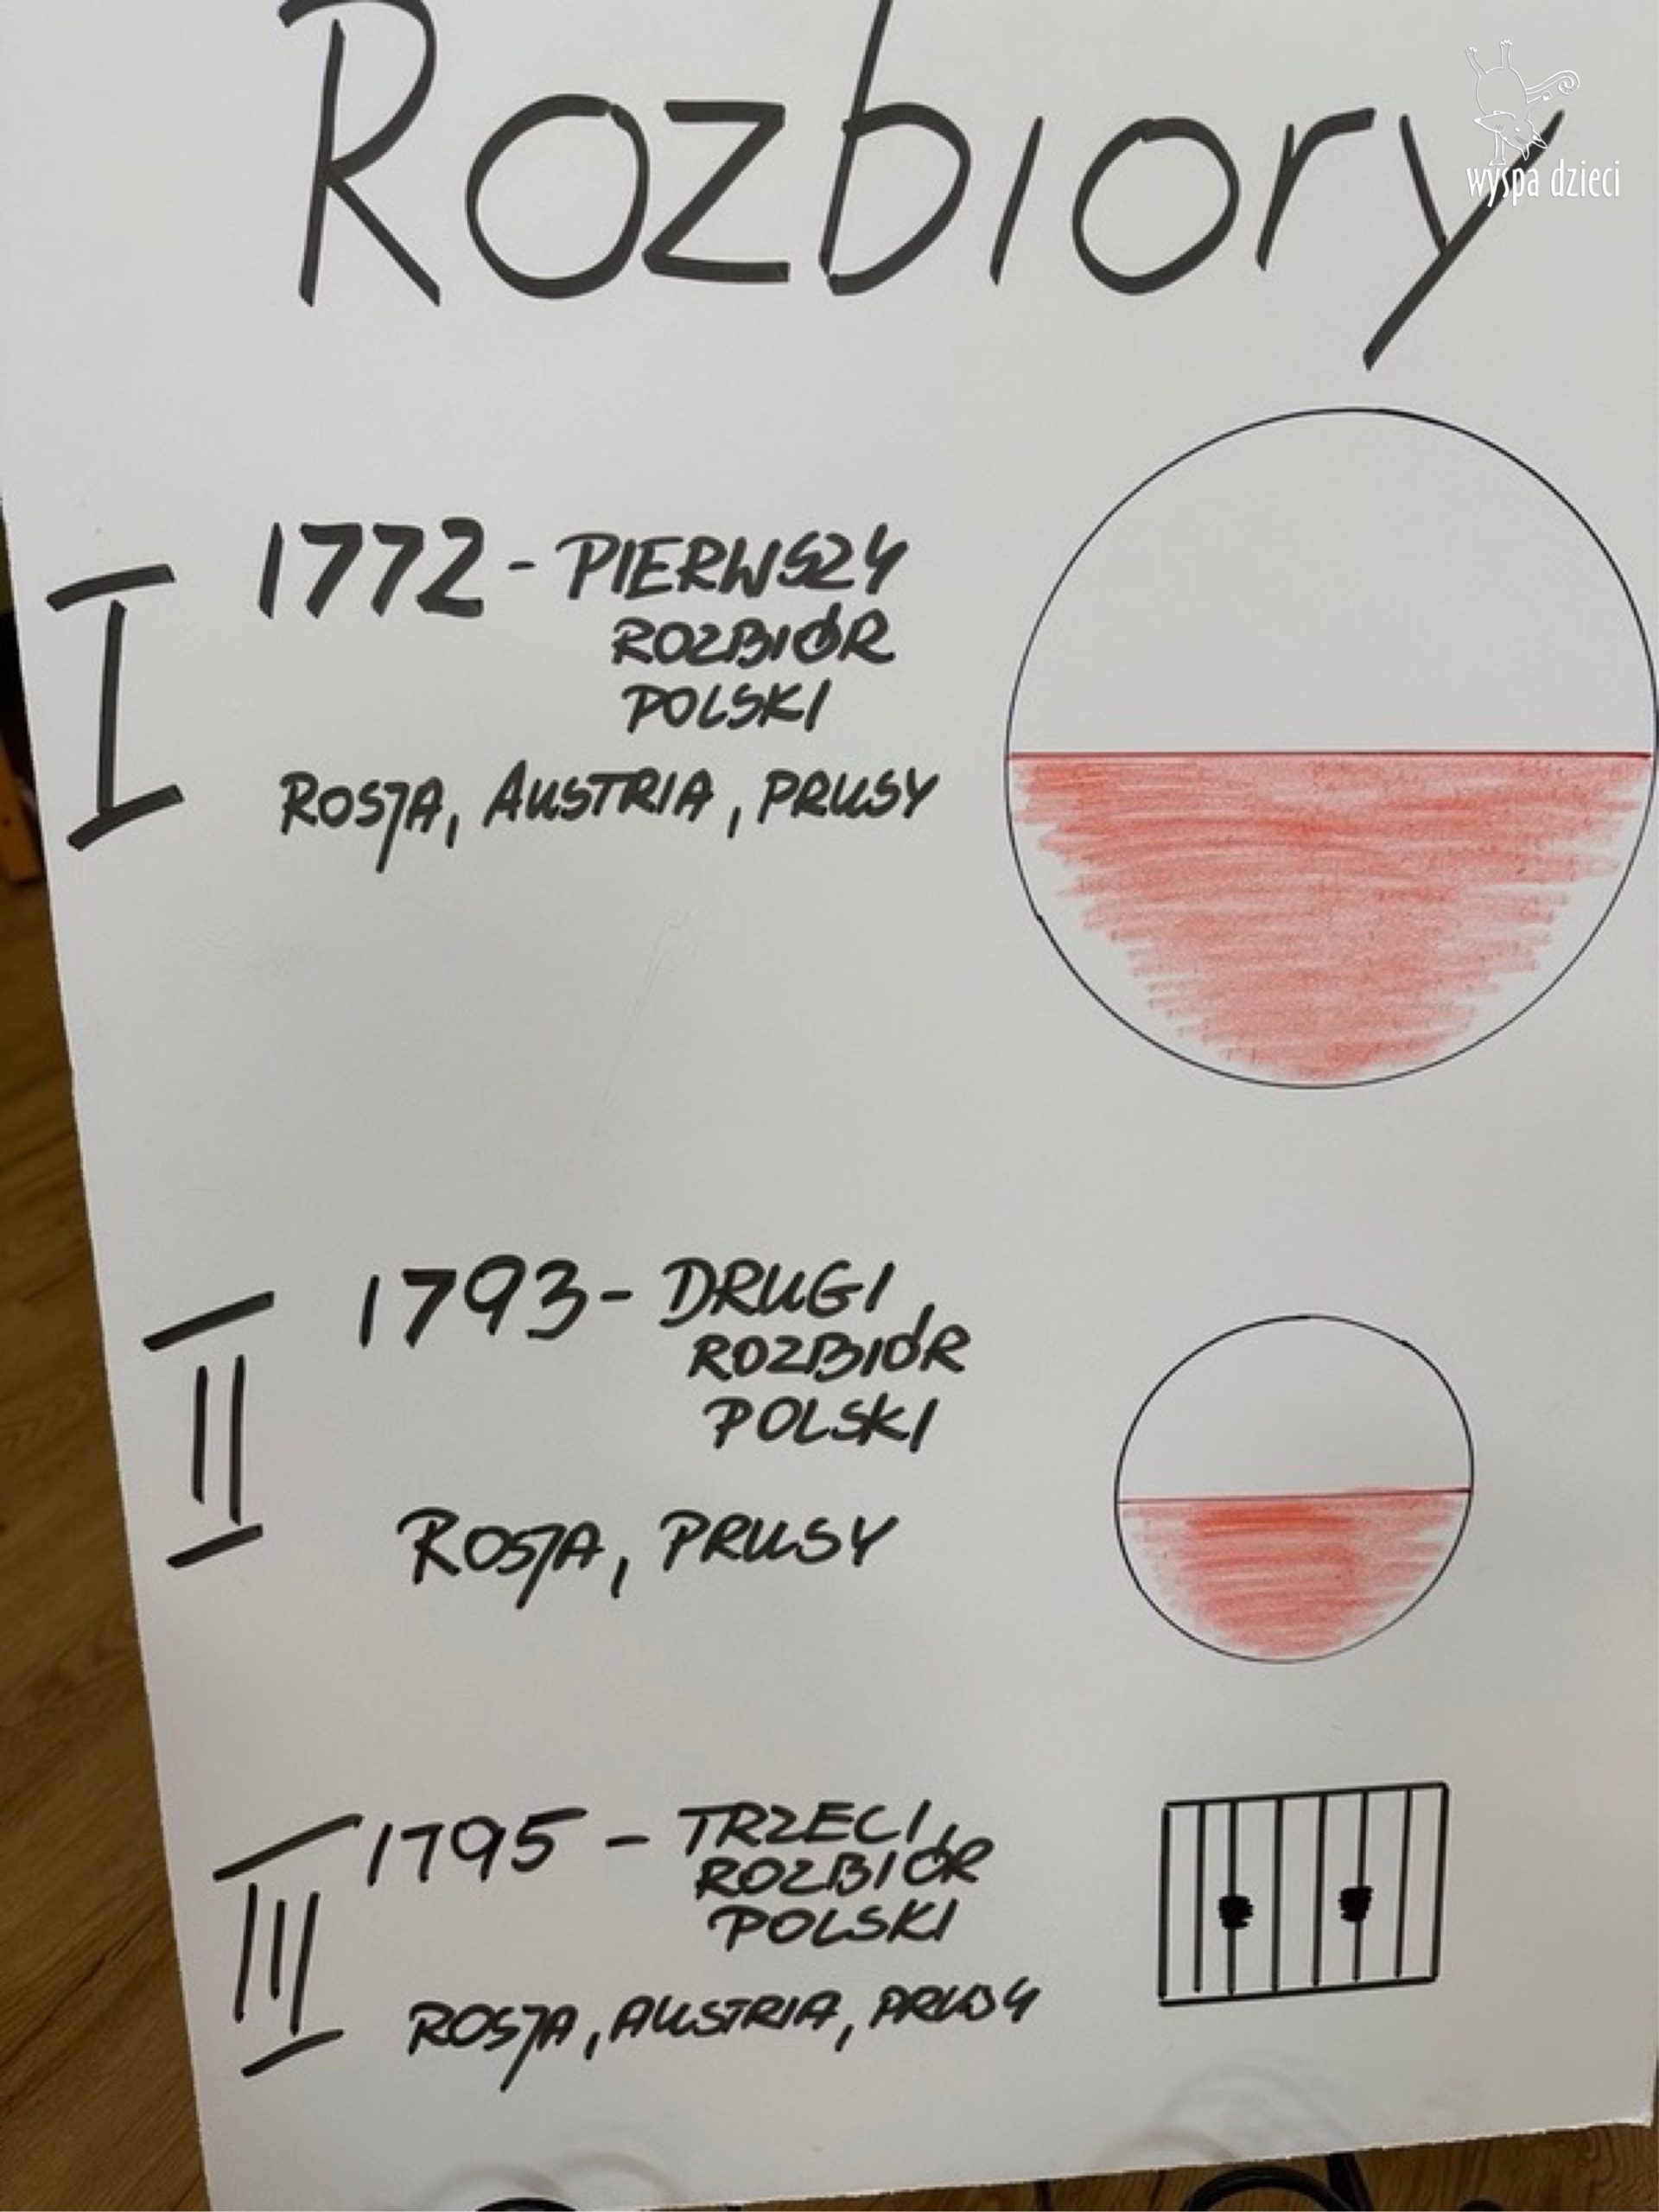 Rozbiory
wyspa dzieci
I 1772 - PIERWSZY
ROZBIÓR
POLSKI
ROSJA, AUSTRIA, PRUSY
II 1793 - DRUGI
ROZBIÓR
POLSKI
ROSJA, PRUSY
III 1795 - TRZECI
ROZBIÓR
POLSKI
ROSJA, AUSTRIA, PRUSY